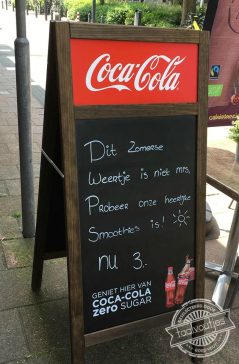 Coca-Cola
Dit Zomerse
Weertje is niet mis,
Probeer onze heerlijke
Smoothies is!
nu 3.-
GENIET HIER VAN
COCA-COLA
zero SUGAR
taalvoutjes